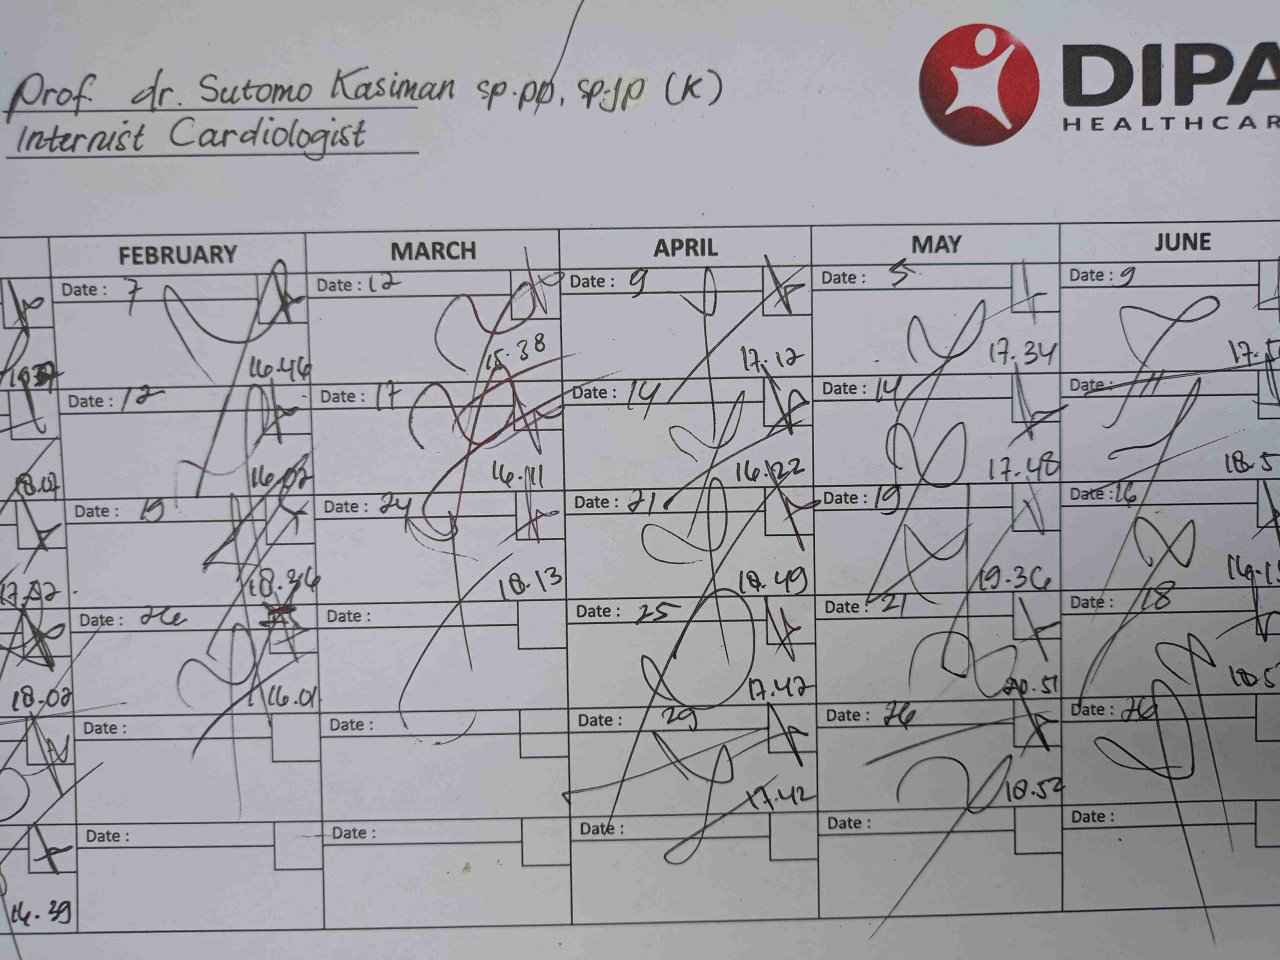 Prof dr. Sutomo Kasiman sp.pp, sp.jp (K)
Internist Cardiologist
DIPA
HEALTHCAR
FEBRUARY MARCH APRIL MAY JUNE
Date : 7 Date : 12 Date : 9 Date : 5 Date : 9
16.46 15.38 17.12 17.34
Date : 12 Date : 17 Date : 14 Date : 14 Date : 11
18.07 16.02 16.11 16.22 17.48 18.5
Date : 19 Date : 24 Date : 21 Date : 19 Date : 16
17.52 18.36 18.13 18.49 19.36
Date : 26 Date : Date : 25 Date : 21 Date : 18
18.02 16.01 17.42 20.51 18.5
Date : Date : Date : 29 Date : 26 Date : 26
17.42 18.52
Date : Date : Date : Date : Date :
16.39